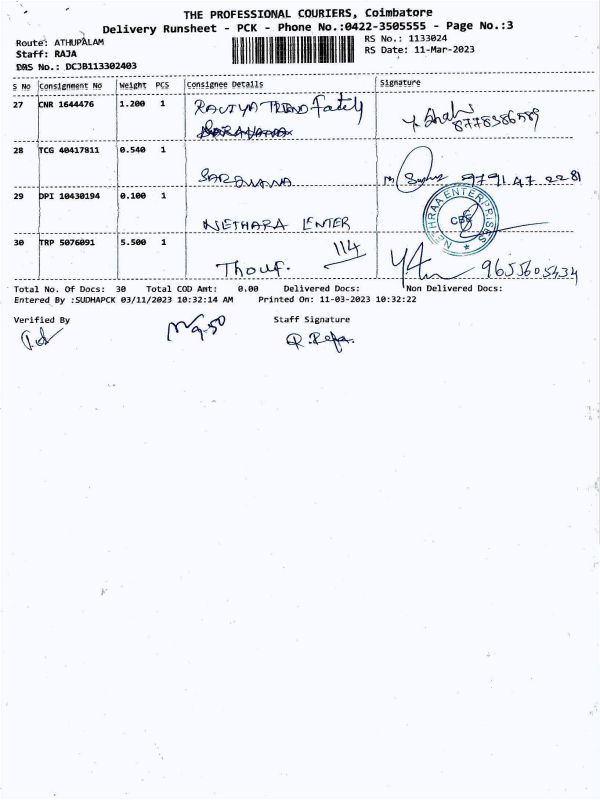 THE PROFESSIONAL COURIERS, Coimbatore
Delivery Runsheet - PCK - Phone No.:0422-3505555 - Page No.:3
Route: ATHUPALAM
RS No.: 1133024
Staff: RAJA
RS Date: 11-Mar-2023
DRS No.: DCJB113302403
S No Consignment No Weight PCS Consignee Details Signature
27 CNR 1644476 1.200 1
8778386589
28 TCG 40417811 0.540 1 SARAVANA 9791 47 2281
29 DPI 10430194 0.100 1 NETHARA ENTER NETHRAA ENTERPRISES CBE
30 TRP 5076091 5.500 1 Thouf. 114 9655605434
Total No. Of Docs: 30 Total COD Amt: 0.00 Delivered Docs: Non Delivered Docs:
Entered By :SUDHAPCK 03/11/2023 10:32:14 AM Printed On: 11-03-2023 10:32:22
Verified By Staff Signature